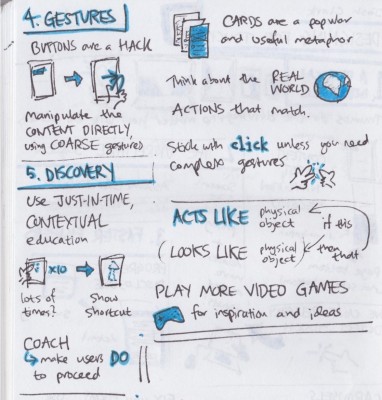 4. GESTURES
BUTTONS are a HACK
manipulate the
CONTENT DIRECTLY,
using COARSE gestures
CARDS are a popular
and useful metaphor
Think about the REAL
WORLD
ACTIONS that match.
Stick with click unless you need
complex gestures
5. DISCOVERY
Use JUST-IN-TIME,
CONTEXTUAL
education
x10
lots of
times?
Show
shortcut
COACH
make users DO
to proceed
ACTS LIKE physical
object
if this
(LOOKS LIKE physical
object)
then
that
PLAY MORE VIDEO GAMES
for inspiration and ideas